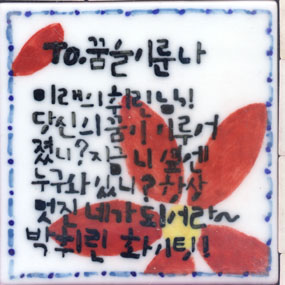 To.꿈을이룬나
미래의휘린님!
당신의꿈이 이루어
졌니?지금 니 옆엔
누구와있니?항상
멋진 네가되어라~
박휘린 화이팅!!